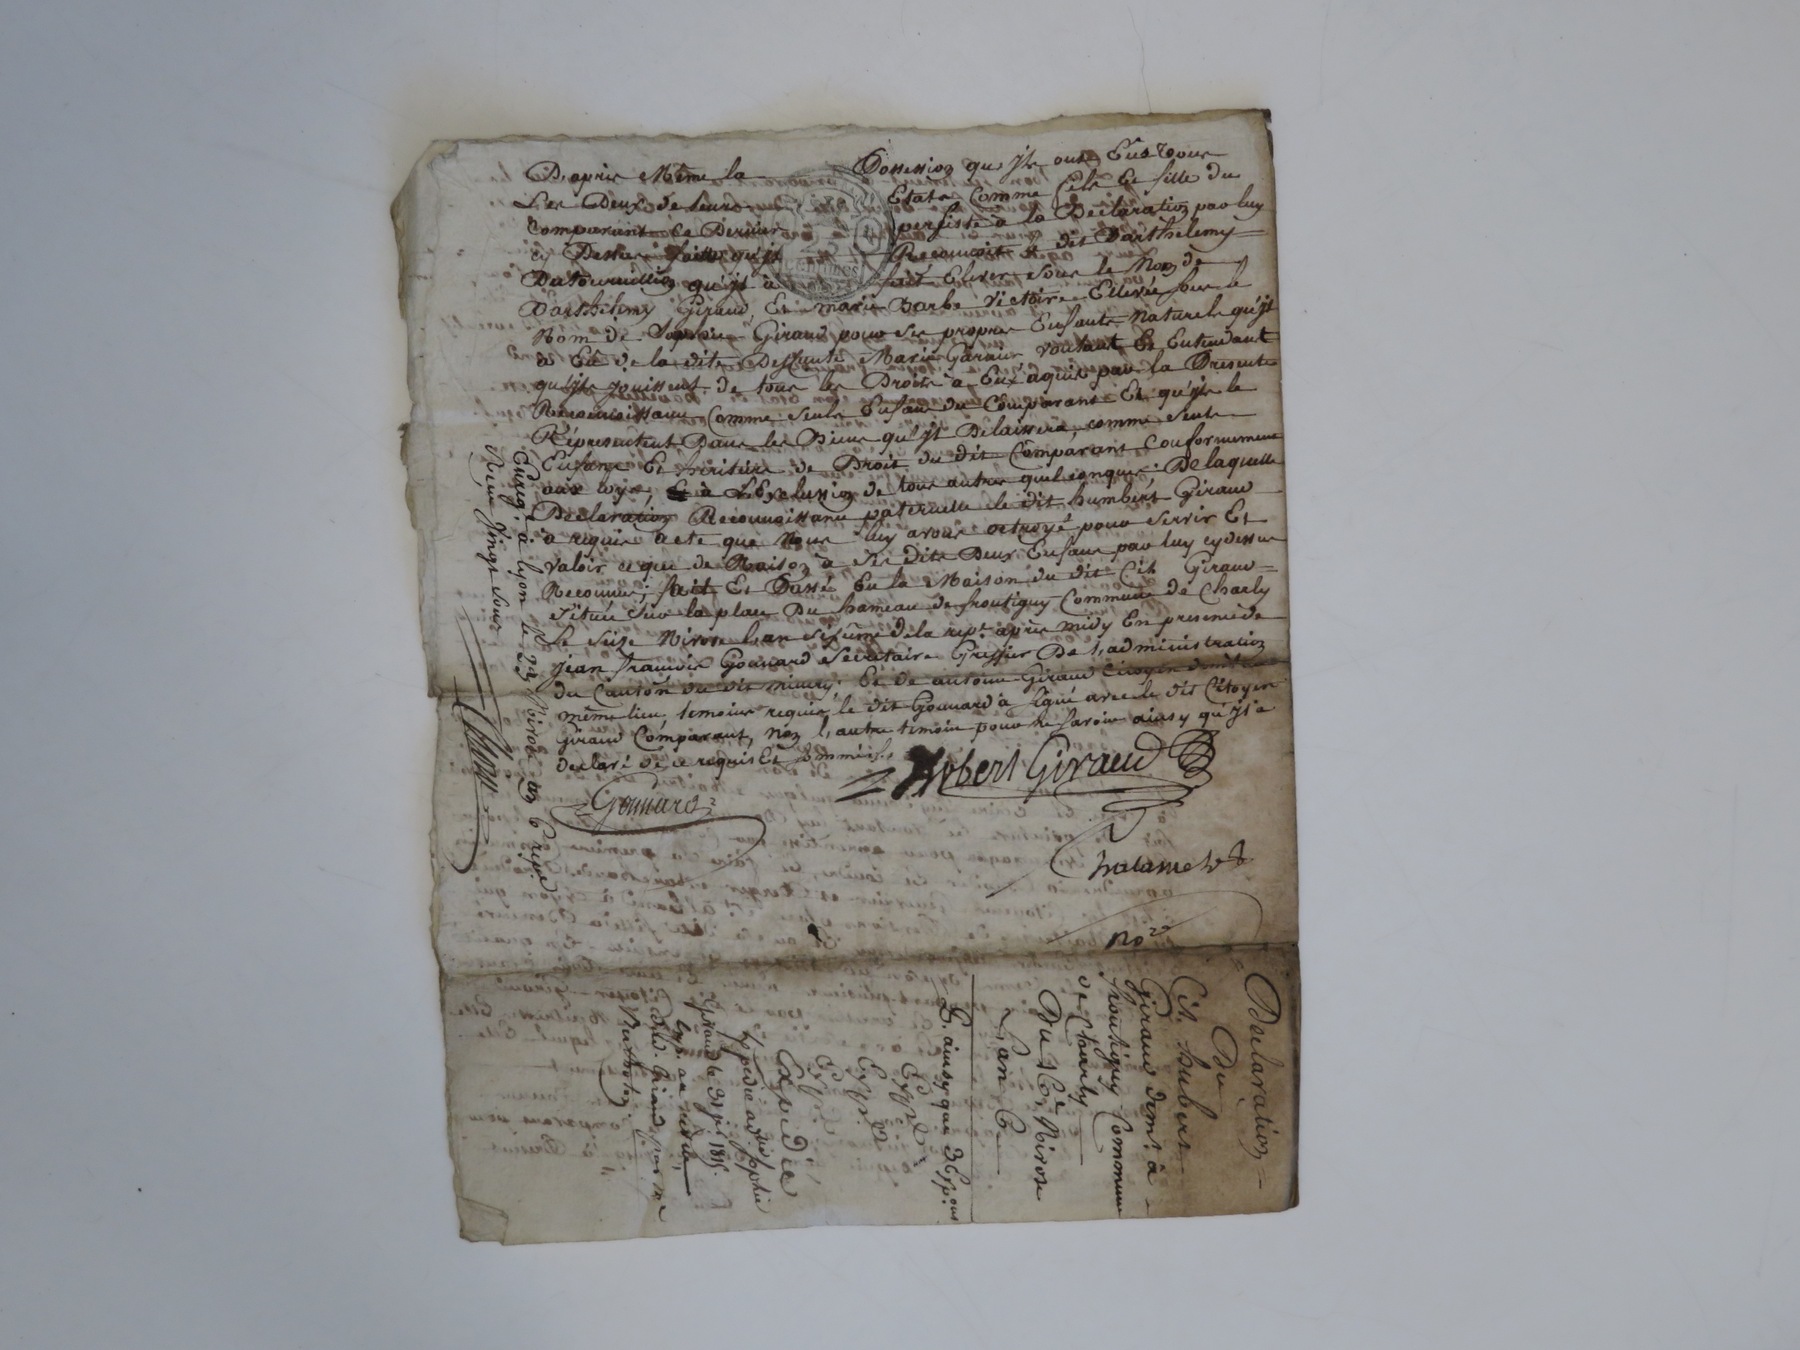 D'après Même la Possession qu'ils ont Eüe tous
Les Deux de leurs Etats Comme fils Et fille du
Comparant Ce Dernier persiste à la Déclaration par luy
cy Dessus faitte qu'il Reconnoit le dit Barthelemy
qu'il à fait Elever sous le Nom de
Barthelemy Giraud, Et marie Barbe Victoire Ellevée sous le
Nom de Sophie Giraud pour ses propres Enfants Naturels qu'il
à Eü de la ditte Deffunte Marie Giraud voulant Et Entendant
qu'ils jouissent de tous les Droits à Eux aquis par la Presente
Reconnoissance Comme seuls Enfans du Comparant Et qu'ils le
Représentent Dans les Biens qu'il Délaissera, comme seuls
Enfans Et héritiers de Droit du dit Comparant Conformement
aux loys, Et à L'Exclussion de tous autres quelconques; De laquelle
Declaration Reconnoissance paternelle le dit humbert Giraud
à requis acte que Nous luy avons octroyé pour servir Et
valoir ce que de Raison à ses dits Deux Enfans par luy cydessus
Reconnus; fait Et Passé En la Maison du dit Cit. Giraud
située sur la place Du hameau de frontigny Commune de Charly
Le seize Nivose l'an sixième de la rep.e après midy En presence de
jean francois Gonnard Secretaire Greffier De l'administration
du Canton du dit , Et de antoine Giraud Citoyen demt au
même lieu temoins requis, le dit Gonnard à signé avec le dit Citoyen
Giraud Comparant, Non l'autre temoin pour ne savoir ainsy qu'il a
declaré de ce requis Et sommés
hobert Giraud
Gonnard
Enreg. à lyon le 23 Nivose an 6
Reçu vingt sous
No.re
Declaration
Du
Cit. hubert
Giraud demt. à
frontigny Commune
de Charly
Du 16e Nivose
L'an 6
E. ainsy que 3 Exp.ons
Expédié
Expédié ad.lle Sophie
Giraud le 31 1815